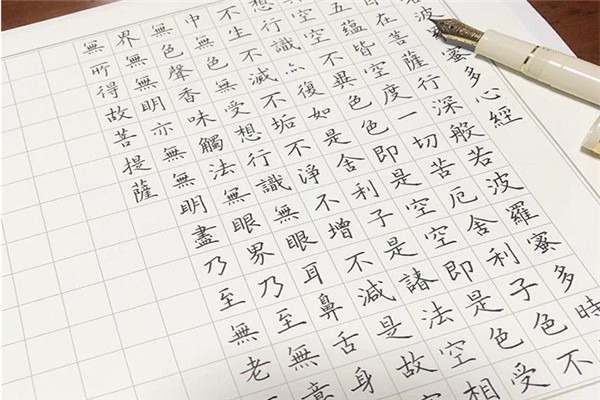 波羅蜜多心經
自在菩薩行深般若波羅蜜多時
五蘊皆空度一切苦厄舍利子色不
空空不異色色即是空空即是色受
想行識亦復如是舍利子是諸法空相
不生不滅不垢不淨不增不減是故
中無色無受想行識無眼耳鼻舌身
無色聲香味觸法無眼界乃至無意
界無無明亦無無明盡乃至無老
無所得故菩提薩